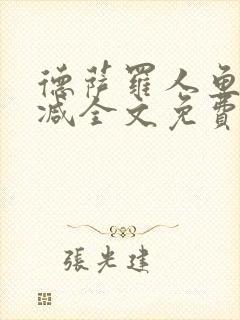 德薩羅人魚
减全文免費
張光建